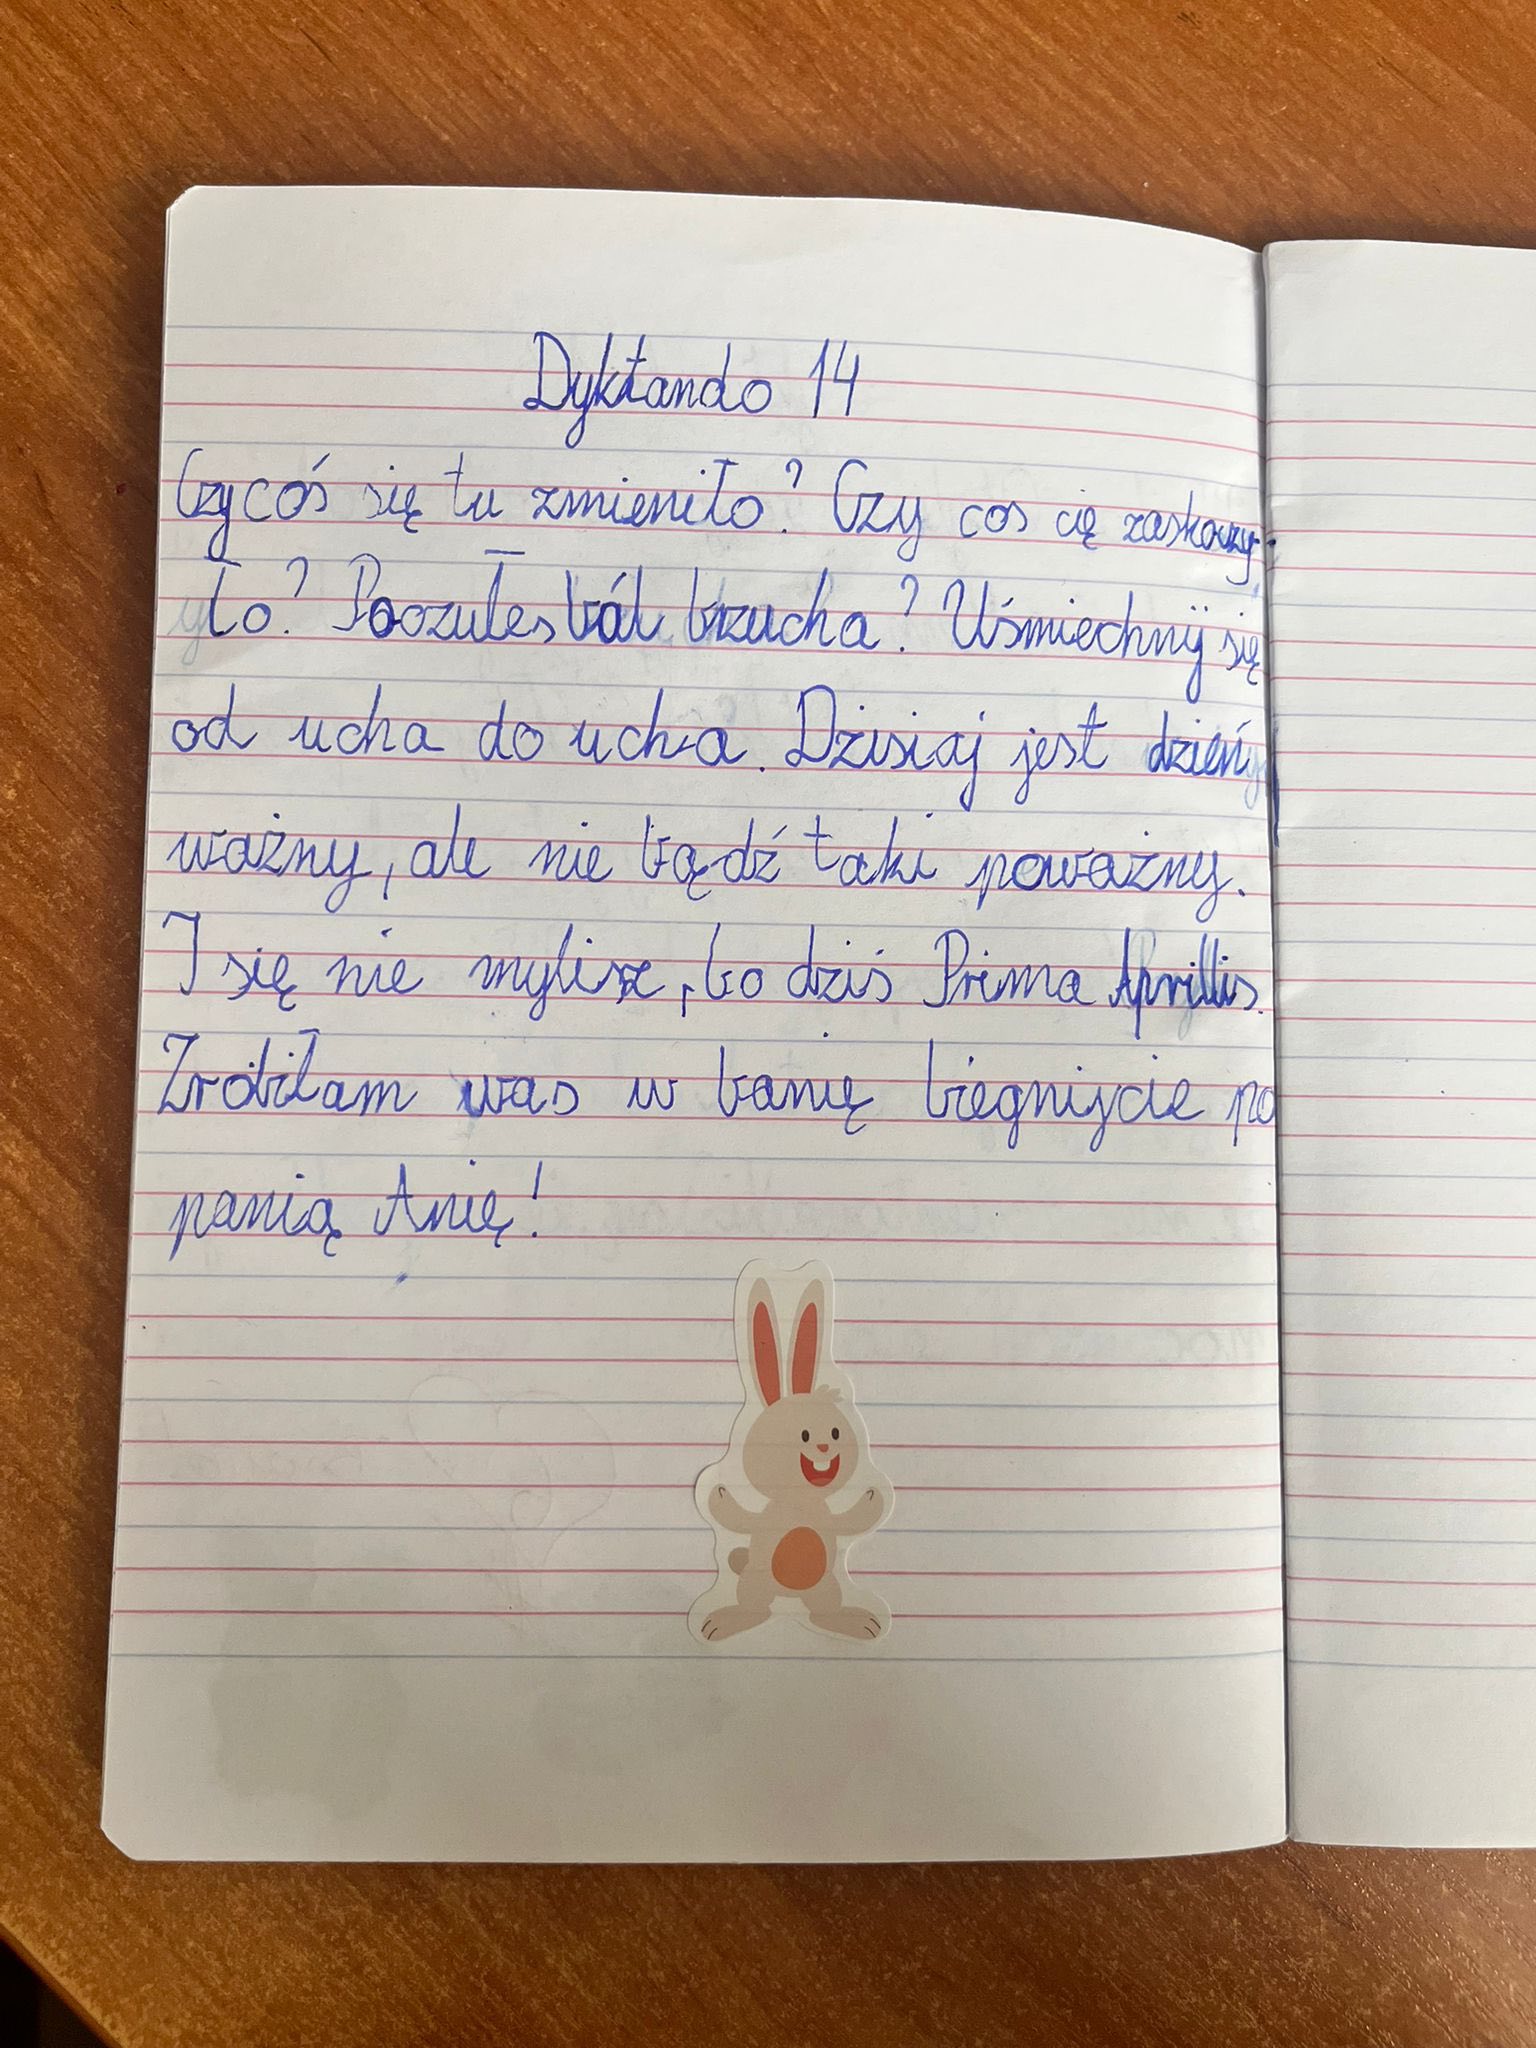 Dyktando 14
Czy coś się tu zmieniło? Czy cos cię zaskoczy-
ło? Poczułes ból brzucha? Uśmiechnij się
od ucha do ucha. Dżisiaj jest dzień
ważny, ale nie bądź taki poważny.
I się nie mylisz, bo dziś Prima Aprillis.
Zrobiłam was w banię biegnijcie po
panią Anię!